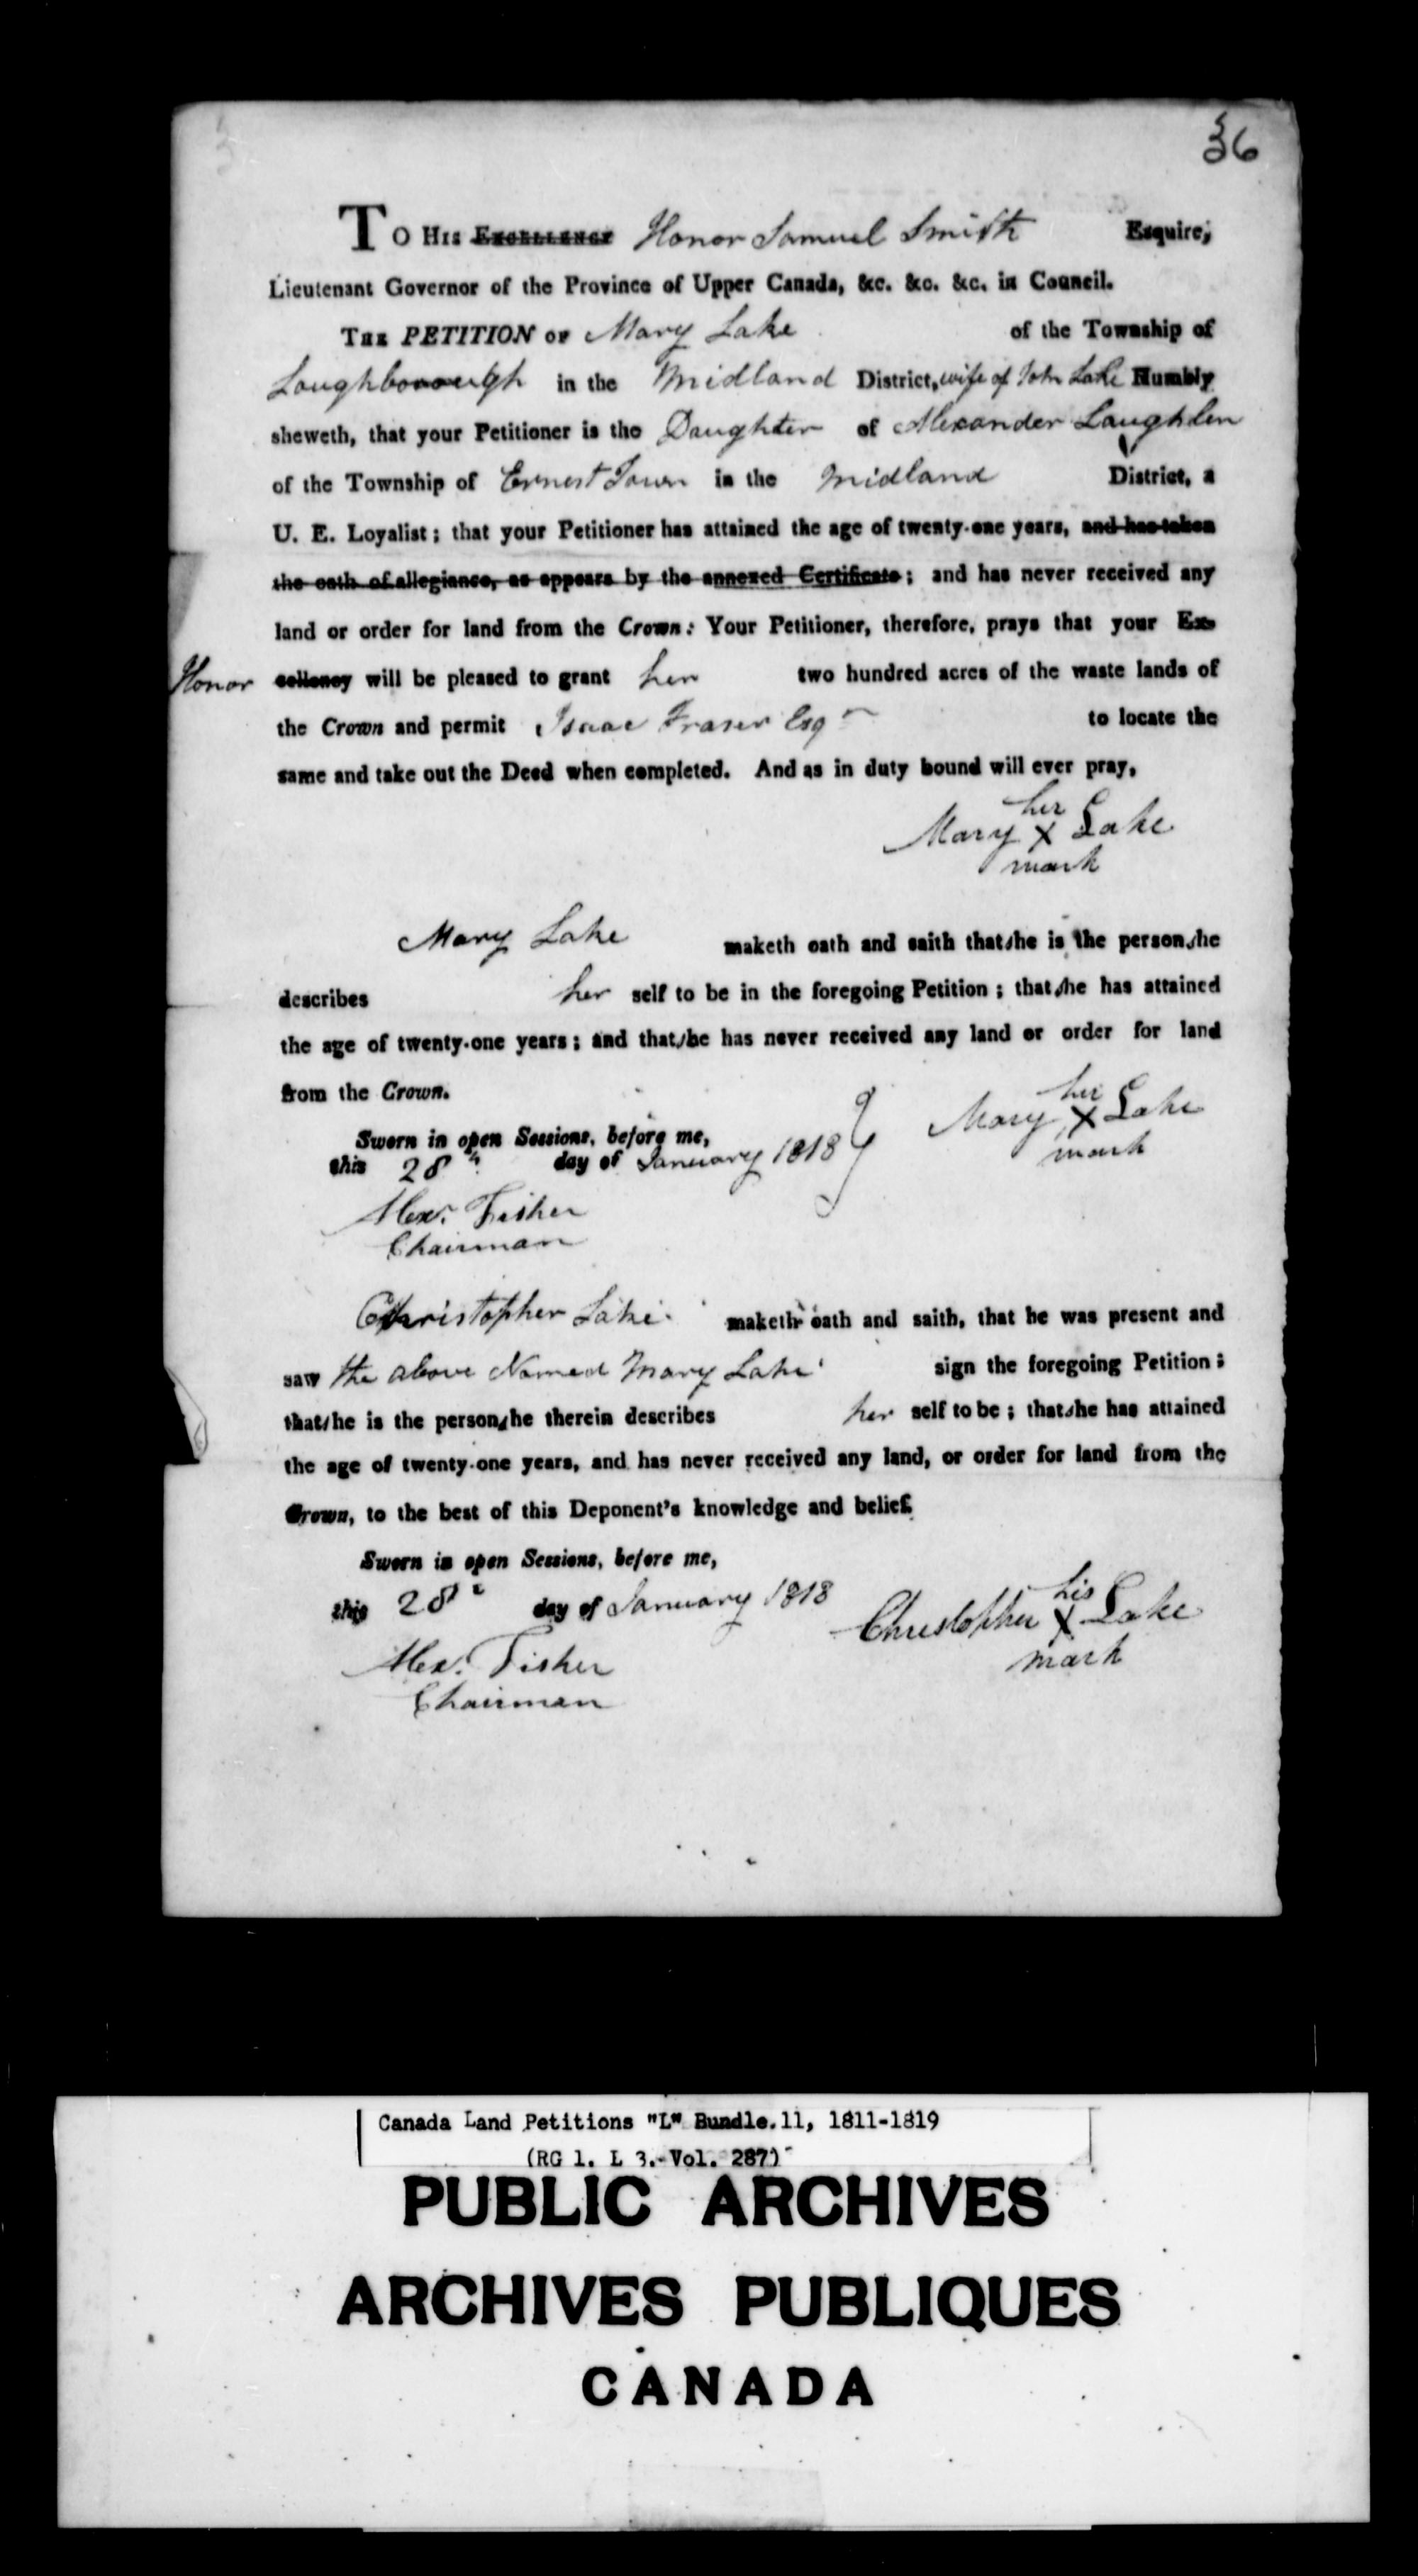 36
TO HIS EXCELLENCY Honor Samuel Smith Esquire,
Lieutenant Governor of the Province of Upper Canada, &c. &c. &c. in Council.
THE PETITION OF Mary Lake of the Township of
Loughborough in the Midland District, wife of John Lake Humbly
sheweth, that your Petitioner is the Daughter of Alexander Laughlin
of the Township of Ernest Town in the Midland District, a
U. E. Loyalist; that your Petitioner has attained the age of twenty-one years, and has taken
the oath of allegiance, as appears by the annexed Certificate; and has never received any
land or order for land from the Crown: Your Petitioner, therefore, prays that your Ex-
Honor cellency will be pleased to grant her two hundred acres of the waste lands of
the Crown and permit Isaac Fraser Esqr to locate the
same and take out the Deed when completed. And as in duty bound will ever pray,
her
Mary X Lake
mark
Mary Lake maketh oath and saith that she is the person she
describes her self to be in the foregoing Petition; that she has attained
the age of twenty-one years; and that she has never received any land or order for land
from the Crown.
her
Mary X Lake
mark
Sworn in open Sessions, before me,
this 28th day of January 1818
Alexr. Fisher
Chairman
Christopher Lake maketh oath and saith, that he was present and
saw the above Named Mary Lake sign the foregoing Petition;
that she is the person she therein describes her self to be; that she has attained
the age of twenty-one years, and has never received any land, or order for land from the
Crown, to the best of this Deponent's knowledge and belief.
Sworn in open Sessions, before me,
this 28th day of January 1818
his
Christopher X Lake
mark
Alexr. Fisher
Chairman
Canada Land Petitions "L" Bundle.11, 1811-1819
(RG 1. L 3.-Vol. 287)
PUBLIC ARCHIVES
ARCHIVES PUBLIQUES
CANADA